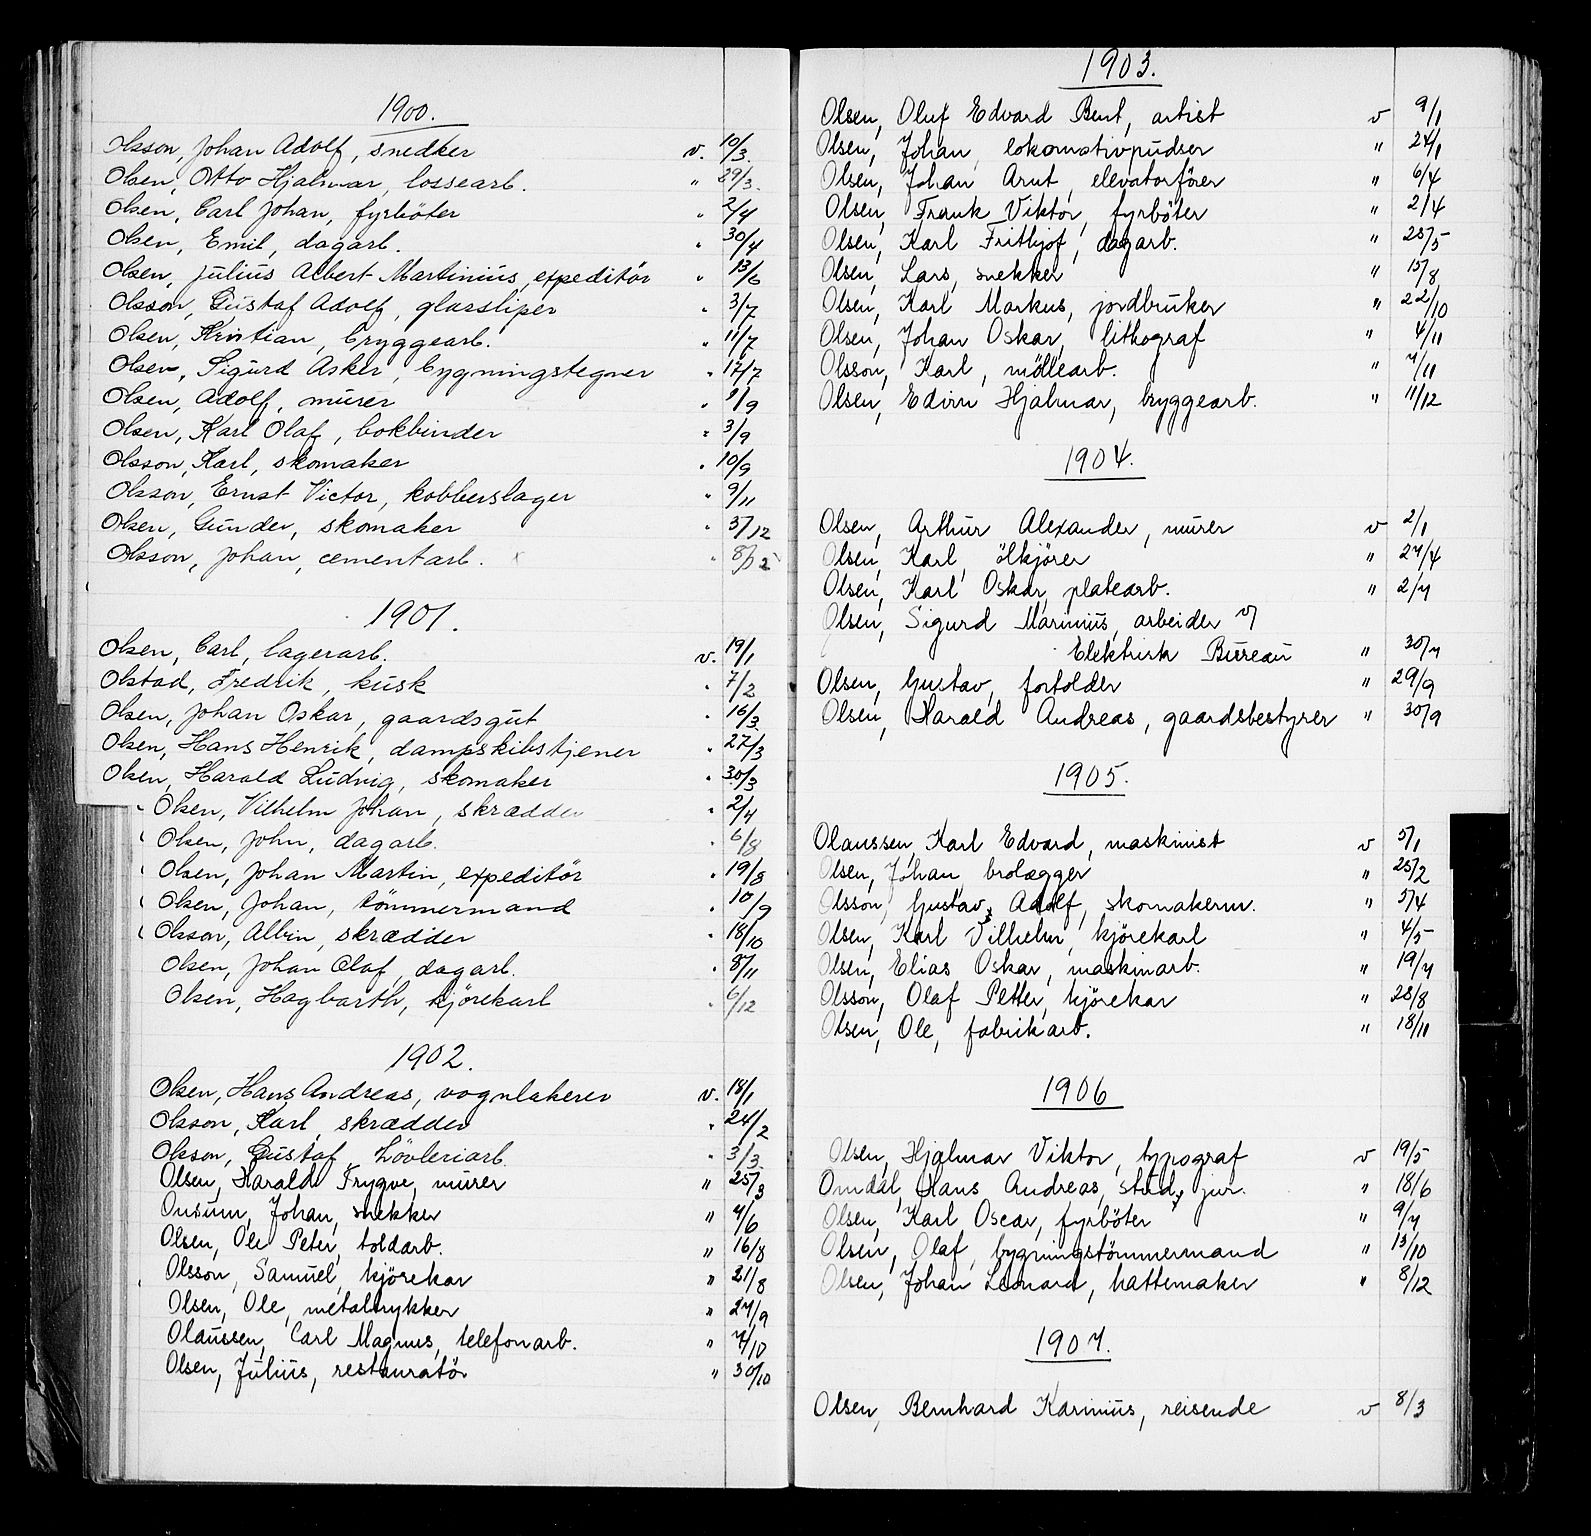 1900.
Olsson, Johan Adolf, snedker v. 10/3.
Olsen, Otto Hjalmar, lossearb. " 29/3.
Olsen, Carl Johan, fyrböter " 2/4
Olsen, Emil, dagarb. " 30/4
Olsen, Julius Albert Martinius, expeditör " 13/6
Olsson, Gustaf Adolf, glassliper " 3/7
Olsen, Kristian, bryggearb. " 11/7
Olsen, Sigurd Asker, bygningstegner " 17/7
Olsen, Adolf, murer " 1/9
Olsen, Karl Olaf, bokbinder " 3/9
Olsson, Karl, skomaker " 10/9
Olsson, Ernst Victor, kobberslager " 9/11
Olsen, Gunder, skomaker " 3/12
Olsson, Johan, cementarb. x " 8/12
1901.
Olsen, Carl, lagerarb. v. 19/1
Olstad, Fredrik, kusk " 7/2
Olsen, Johan Oskar, gaardsgut " 16/3
Olsen, Hans Henrik, dampskibstjener " 27/3
Olsen, Harald Ludvig, skomaker " 30/3
Olsen, Vilhelm Johan, skrædder " 2/4
Olsen, John, dagarb. " 6/8
Olsen, Johan Martin, expeditör " 19/8
Olsen, Johan, tömmermand " 10/9
Olsson, Albin, skrædder " 18/10
Olsen, Johan Olaf, dagarb. " 8/11
Olsen, Hagbarth, kjörekarl " 6/12
1902.
Olsen, Hans Andreas, vognlakerer v. 18/1
Olsson, Karl, skrædder " 24/2
Olsson, Gustaf, Lövleriarb. " 3/3
Olsen, Harald Trygve, murer " 25/3
Onsum, Johan, snekker " 4/6
Olsen, Ole Peter, toldarb. " 16/8
Olsson, Samuel, kjörekar " 21/8
Olsen, Ole, metaltrykker " 27/9
Olaussen, Carl Magnus, telefonarb. " 7/10
Olsen, Julius, restauratör " 30/10
1903.
Olsen, Oluf Edvard Bent, artist v 9/1
Olsen, Johan, lokomotivpudser " 24/1
Olsen, Johan Arnt, elevatorförer " 6/4
Olsen, Frank Viktor, fyrböter " 2/4
Olsen, Karl Frithjof, dagarb. " 25/5
Olsen, Lars, snekker " 15/8
Olsen, Karl Markus, jordbruker " 22/10
Olsen, Johan Oskar, lithograf " 4/11
Olsson, Karl, möllearb. " 7/11
Olsen, Edvin Hjalmar, bryggearb. " 11/12
1904.
Olsen, Arthur Alexander, murer v 2/1
Olsen, Karl, ölkjörer " 27/4
Olsen, Karl Oskar, platearb. " 2/7
Olsen, Sigurd Marinius, arbeider v/
Elektrisk Bureau " 30/7
Olsen, Gustav, fortolder " 29/9
Olsen, Harald Andreas, gaardsbestyrer " 30/9
1905.
Olaussen, Karl Edvard, maskinist v 5/1
Olsen, Johan brolægger " 25/2
Olsson, Gustav Adolf, skomakerm. " 5/4
Olsen, Karl Vilhelm, kjörekarl " 4/5
Olsen, Elias Oskar, maskinarb. " 19/7
Olsson, Olaf Petter, kjörekar " 28/8
Olsen, Ole, fabrikarb. " 18/11
1906
Olsen, Hjalmar Viktor, typograf v 19/5
Omdal, Hans Andreas, stud. jur. " 18/6
Olsen, Karl Oscar, fyrböter " 9/7
Olsen, Olaf, bygningstömmermand " 13/10
Olsen, Johan Leonard, hattemaker " 8/12
1907.
Olsen, Bernhard Karinius, reisende v 8/3